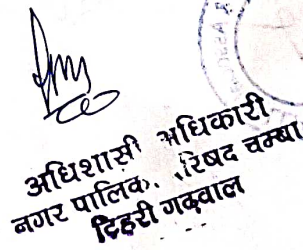 अधिशासी अधिकारी
नगर पालिका परिषद चम्बा
टिहरी गढ़वाल